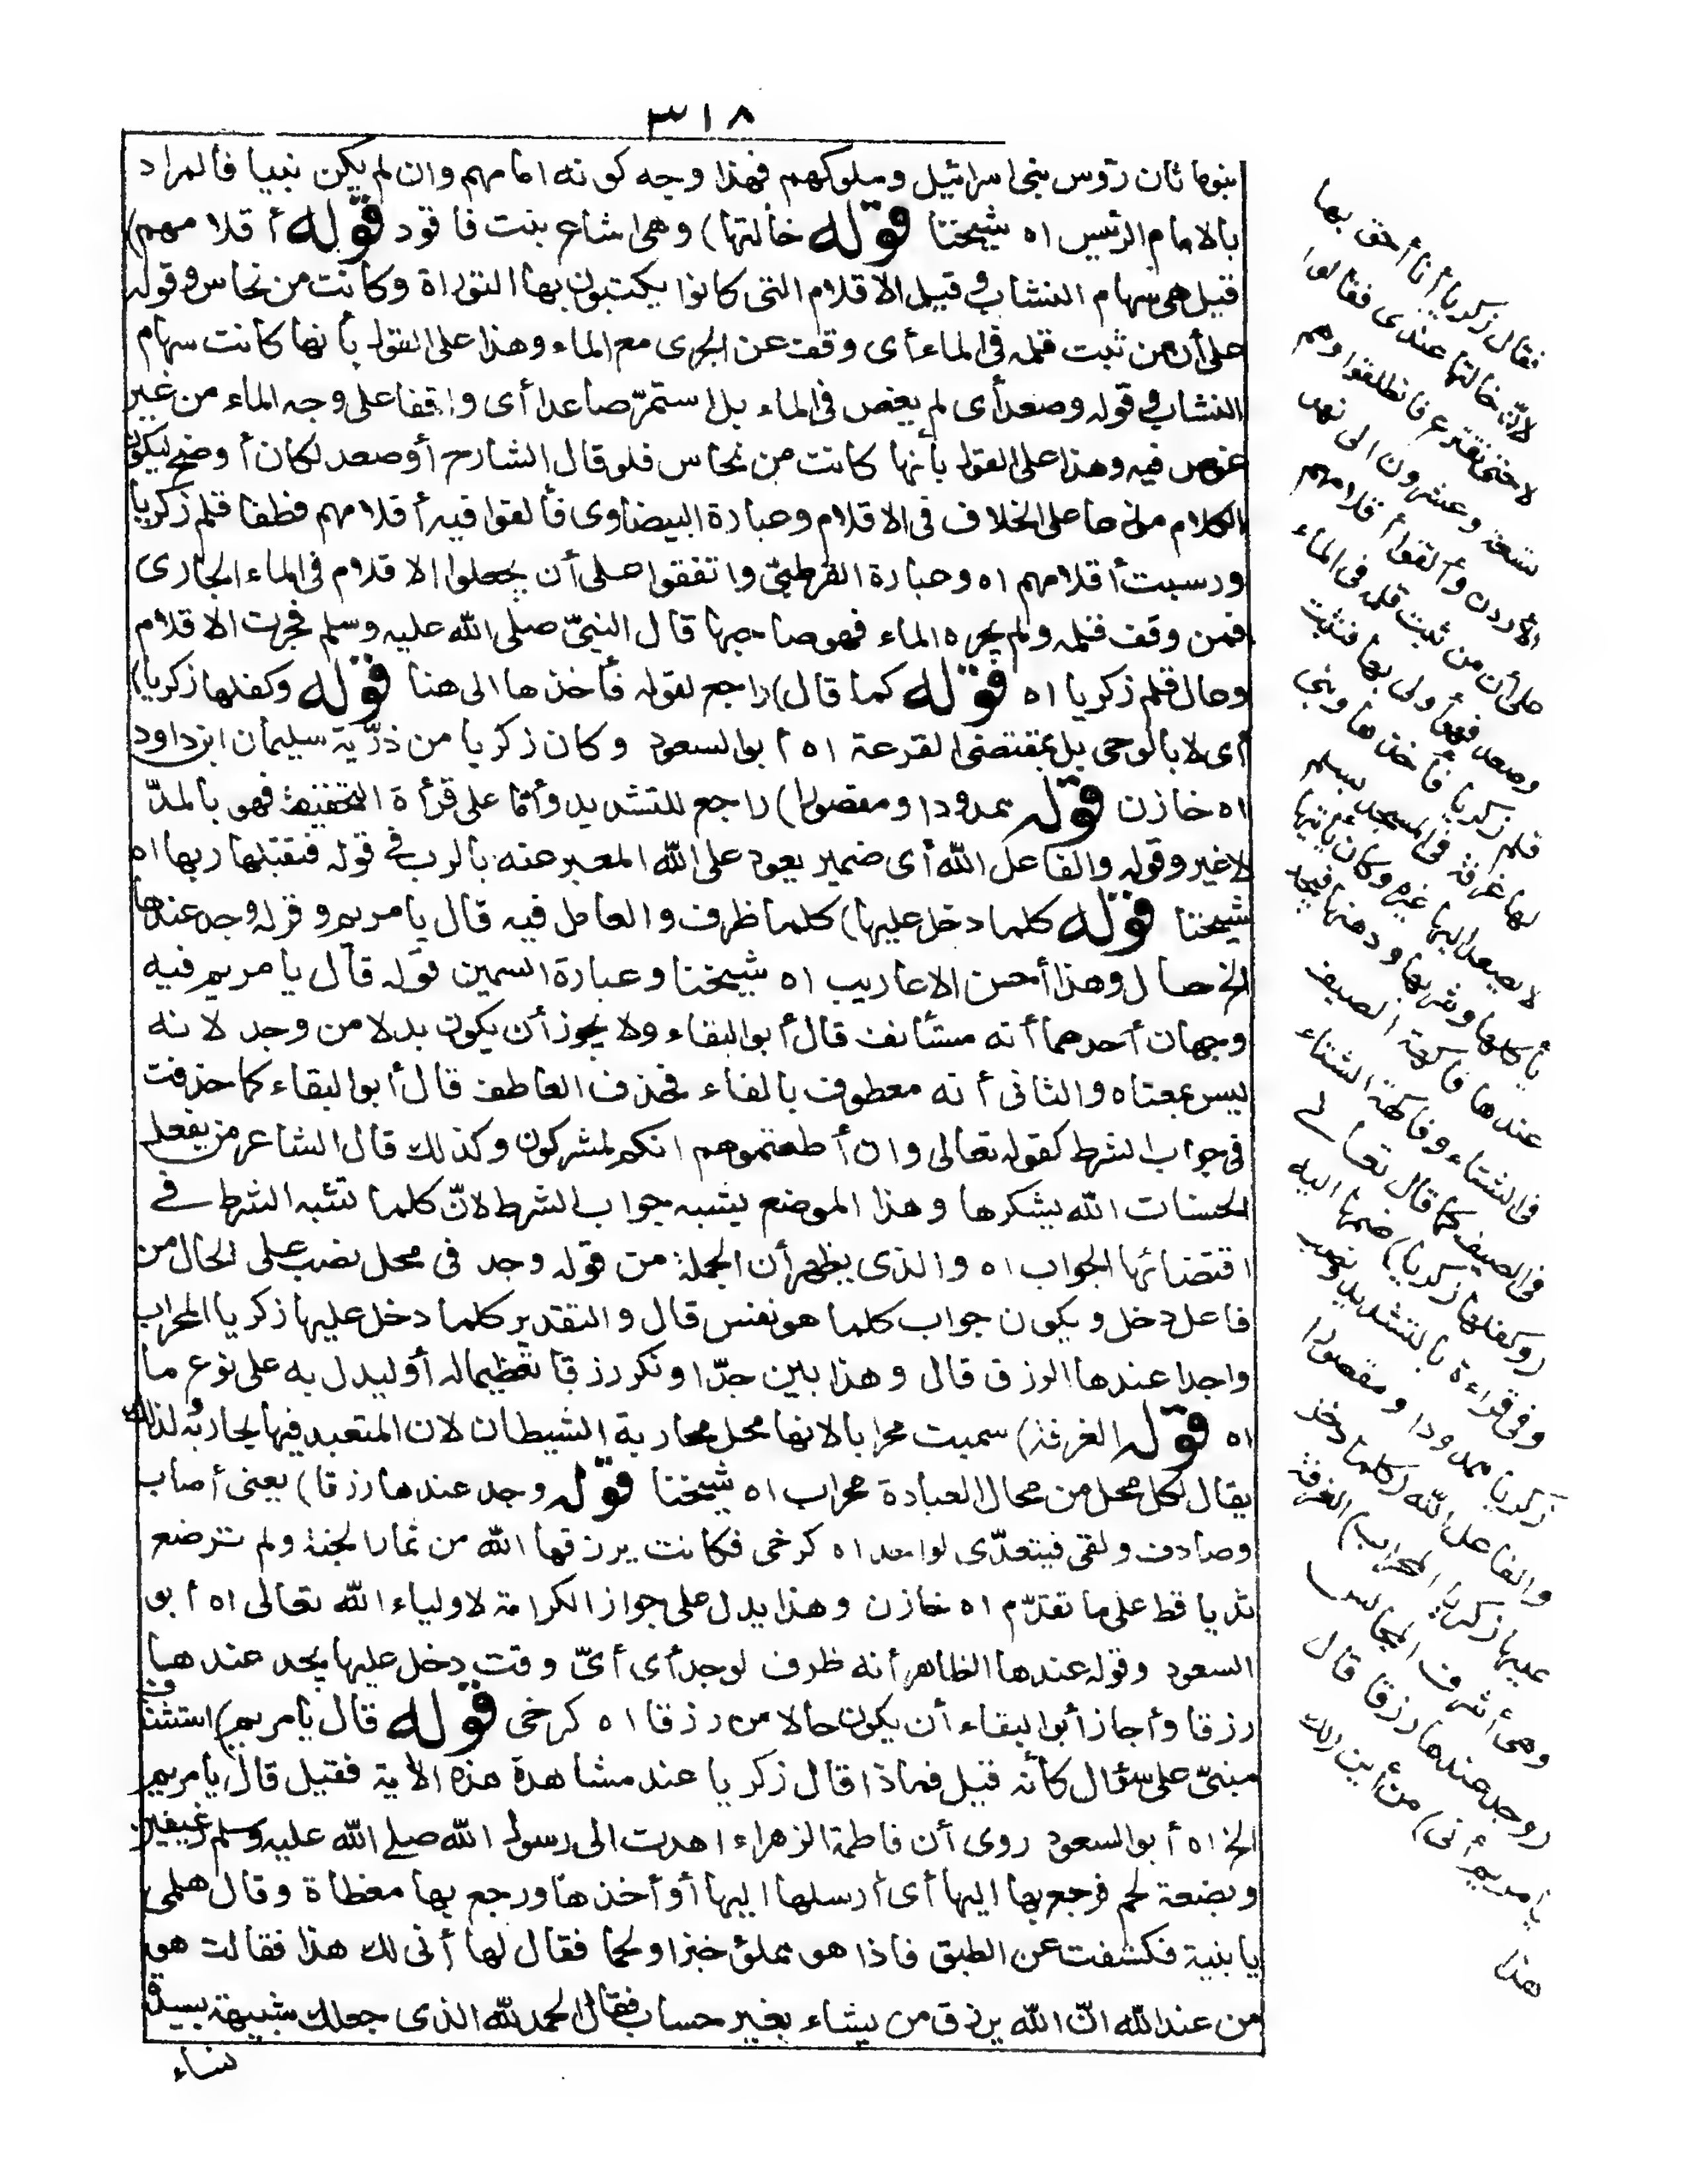 ٣١٨
بنوماثان رؤس بنى اسرائيل وملوكهم فهذا وجه كونه امامهم وان لم يكن نبيا فالمراد
بالامام الرئيس اه شيخنا قوله خالتها) وهى اشاع بنت فاقود قوله أقلامهم)
قيل هى سهام النشاب وقيل الاقلام التى كانوا يكتبون بها التوراة وكانت من نحاس وقوله
على أن من ثبت قلمه فى الماء أى وقف عن الجرى مع الماء وهذا على القول بأنها كانت سهام
النشاب وقوله وصعد أى لم يغص فى الماء بل استمرّ صاعدا أى واقفا على وجه الماء من غير
غوص فيه وهذا على القول بأنها كانت من نحاس فلو قال الشارح أو صعد لكان أوضح ليكون
الكلام موزعا على الخلاف فى الاقلام وعبارة البيضاوى فألقوا فيه أقلامهم فطفا قلم زكريا
ورسبت أقلامهم اه وعبارة القرطبىّ واتفقوا على أن يجعلوا الاقلام فى الماء الجارى
فمن وقف قلمه ولم يجره الماء فهو صاحبها قال النبىّ صلى الله عليه وسلم فجرت الاقلام
وعال قلم زكريا اه قوله كما قال) راجع لقوله فأخذها الى هنا قوله وكفلها زكريا)
أى لا بالوحى بل بمقتضى القرعة اه أبوالسعود وكان زكريا من ذرّية سليمان ابن داود
اه خازن قوله ممدودا ومقصورا) راجع للتشديد وأمّا على قرأة التخفيف فهو بالمدّ
لاغير وقوله والفاعل الله أى ضمير يعود على الله المعبر عنه بالرب فى قوله فتقبلها ربها اه
شيخنا قوله كلما دخل عليها) كلما ظرف والعامل فيه قال يا مريم وقوله وجد عندها
الخ حال وهذا أحسن الاعاريب اه شيخنا وعبارة السمين قوله قال يا مريم فيه
وجهان أحدهما أنه مستأنف قال أبوالبقاء ولا يجوز أن يكون بدلا من وجد لانه
ليس بمعناه والثانى أنه معطوف بالفاء فحذف العاطف قال أبوالبقاء كما حذفت
فى جواب الشرط كقوله تعالى وان أطعتموهم انكم لمشركون وكذلك قال الشاعر من يفعل
الحسنات الله يشكرها وهذا الموضع يشبه جواب الشرط لانّ كلما تشبه الشرط فى
اقتضائها الجواب اه والذى يظهر أن الجملة من قوله وجد فى محل نصب على الحال من
فاعل دخل ويكون جواب كلما هو نفس قال والتقدير كلما دخل عليها زكريا المحراب
واجدا عندها الرزق قال وهذا بين جدّا ونكر رزقا تعظيما له أو ليدل به على نوع ما
اه قوله الغرفة) سميت محرابا لانها محل محاربة الشيطان لان المتعبد فيها يحاربه ولذلك
يقال لكل محل من محال العبادة محراب اه شيخنا قوله وجد عندها رزقا) يعنى أصاب
وصادف ولقى فيتعدّى لواحد اه كرخى فكانت يرزقها الله من ثمار الجنة ولم ترضع
ثديا قط على ما تقدّم اه خازن وهذا يدل على جواز الكرامة لاولياء الله تعالى اه أبو
السعود وقوله عندها الظاهر أنه ظرف لوجد أى أىّ وقت دخل عليها يجد عندها
رزقا وأجاز أبوالبقاء أن يكون حالا من رزقا اه كرخى قوله قال يا مريم) استئناف
مبنىّ على سؤال كأنه قيل فماذا قال زكريا عند مشاهدة هذه الأية فقيل قال يا مريم
الخ اه أبوالسعود روى أن فاطمة الزهراء اهدت الى رسول الله صلى الله عليه وسلم رغيفين
وبضعة لحم فرجع بها اليها أى أرسلها اليها أو أخذها ورجع بها مغطاة وقال هلمى
يا بنية فكشفت عن الطبق فاذا هو مملؤ خبزا ولحما فقال لها أنى لك هذا فقالت هو
من عند الله انّ الله يرزق من يشاء بغير حساب فقال الحمد لله الذى جعلك شبيهة بسيدة
نساء
فقال زكريا أنا أحق بها
لانّ خالتها عندى فقالوا
لا حتى نقترع فانطلقوا وهم
تسعة وعشرون الى نهر
الأردن وألقوا أقلامهم
على أن من ثبت قلمه فى الماء
وصعد فهو أولى بها فثبت
قلم زكريا فأخذها وبنى
لها غرفة فى المسجد بسلم
لا يصعد اليها غيره وكان يأتيها
بأكلها وشربها ودهنها فيجد
عندها فاكهة الصيف
فى الشتاء وفاكهة الشتاء
فى الصيف كما قال تعالى
(وكفلها زكريا) ضمها اليه
وفى قراءة بالتشديد ونصب
زكريا ممدودا ومقصورا
والفاعل الله (كلما دخل
عليها زكريا المحراب) الغرفة
وهى أشرف المجالس
(وجد عندها رزقا قال
يا مريم أنى) من أين (لك
هذا